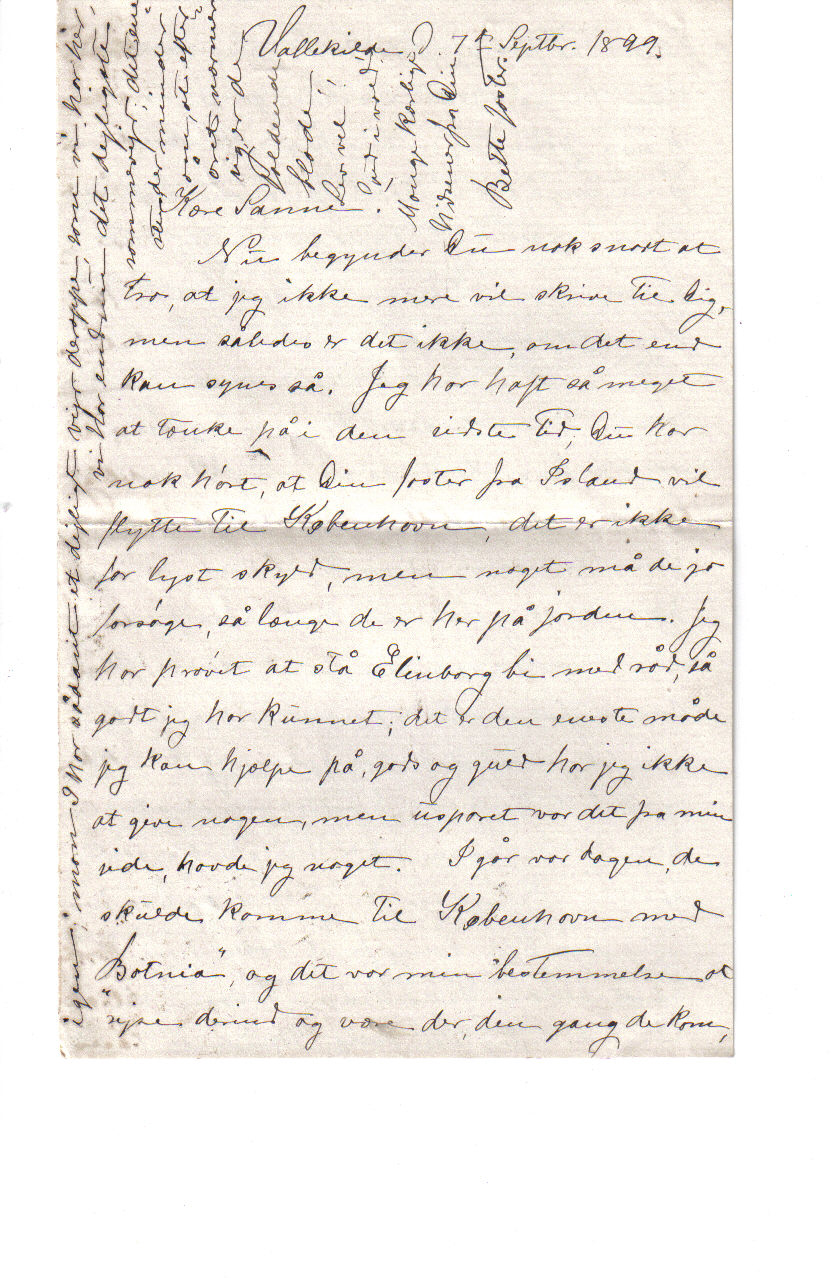 Vallekilde d. 7de Septbr. 1899.
Kære Sanne!
Nu begynder Du nok snart at
tro, at jeg ikke mere vil skrive til Dig,
men således er det ikke, om det end
kan synes så. Jeg har haft så meget
at tænke på i den sidste tid, Du har
nok hørt, at Din faster fra Island vil
flytte til København, det er ikke
for lyst skyld, men noget må de jo
forsøge, så længe de er her på jorden. Jeg
har prøvet at stå Elinborg bi med råd, så
godt jeg har kunnet; det er den eneste måde
jeg kan hjælpe på, gods og guld har jeg ikke
at give nogen, men usparet var det fra min
side, havde jeg noget. I går var dagen, de
skulde komme til København med
"Botnia", og det var min bestemmelse at
rejse derind og være der, den gang de kom,
igen, mon I har sådant et dejligt vejr deroppe, som vi har her,
vi har endnu det dejligste
sommervejr, det ene
der minder
om, at efter-
året nærmer
sig, er de
faldende
blade.
Lev vel!
Mange kærlige
hilsner fra Din
Bette faster.